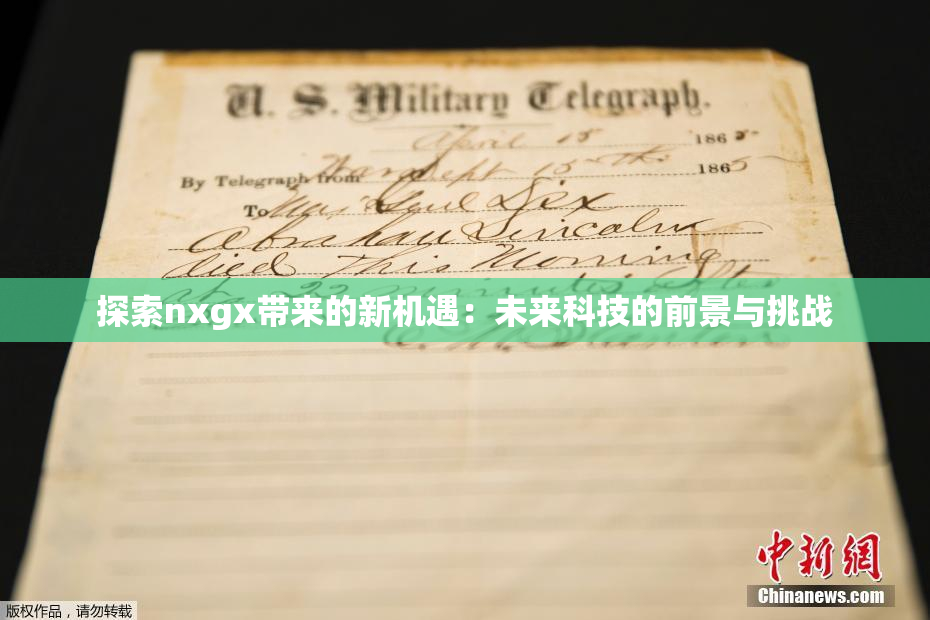 U. S. Military Telegraph.
April 15 1865
By Telegraph from War Dept 15th 1865
To Maj Genl Dix
Abraham Lincoln
died This Morning
22 minutes after
探索nxgx带来的新机遇：未来科技的前景与挑战
中新网
Chinanews.com
版权作品，请勿转载